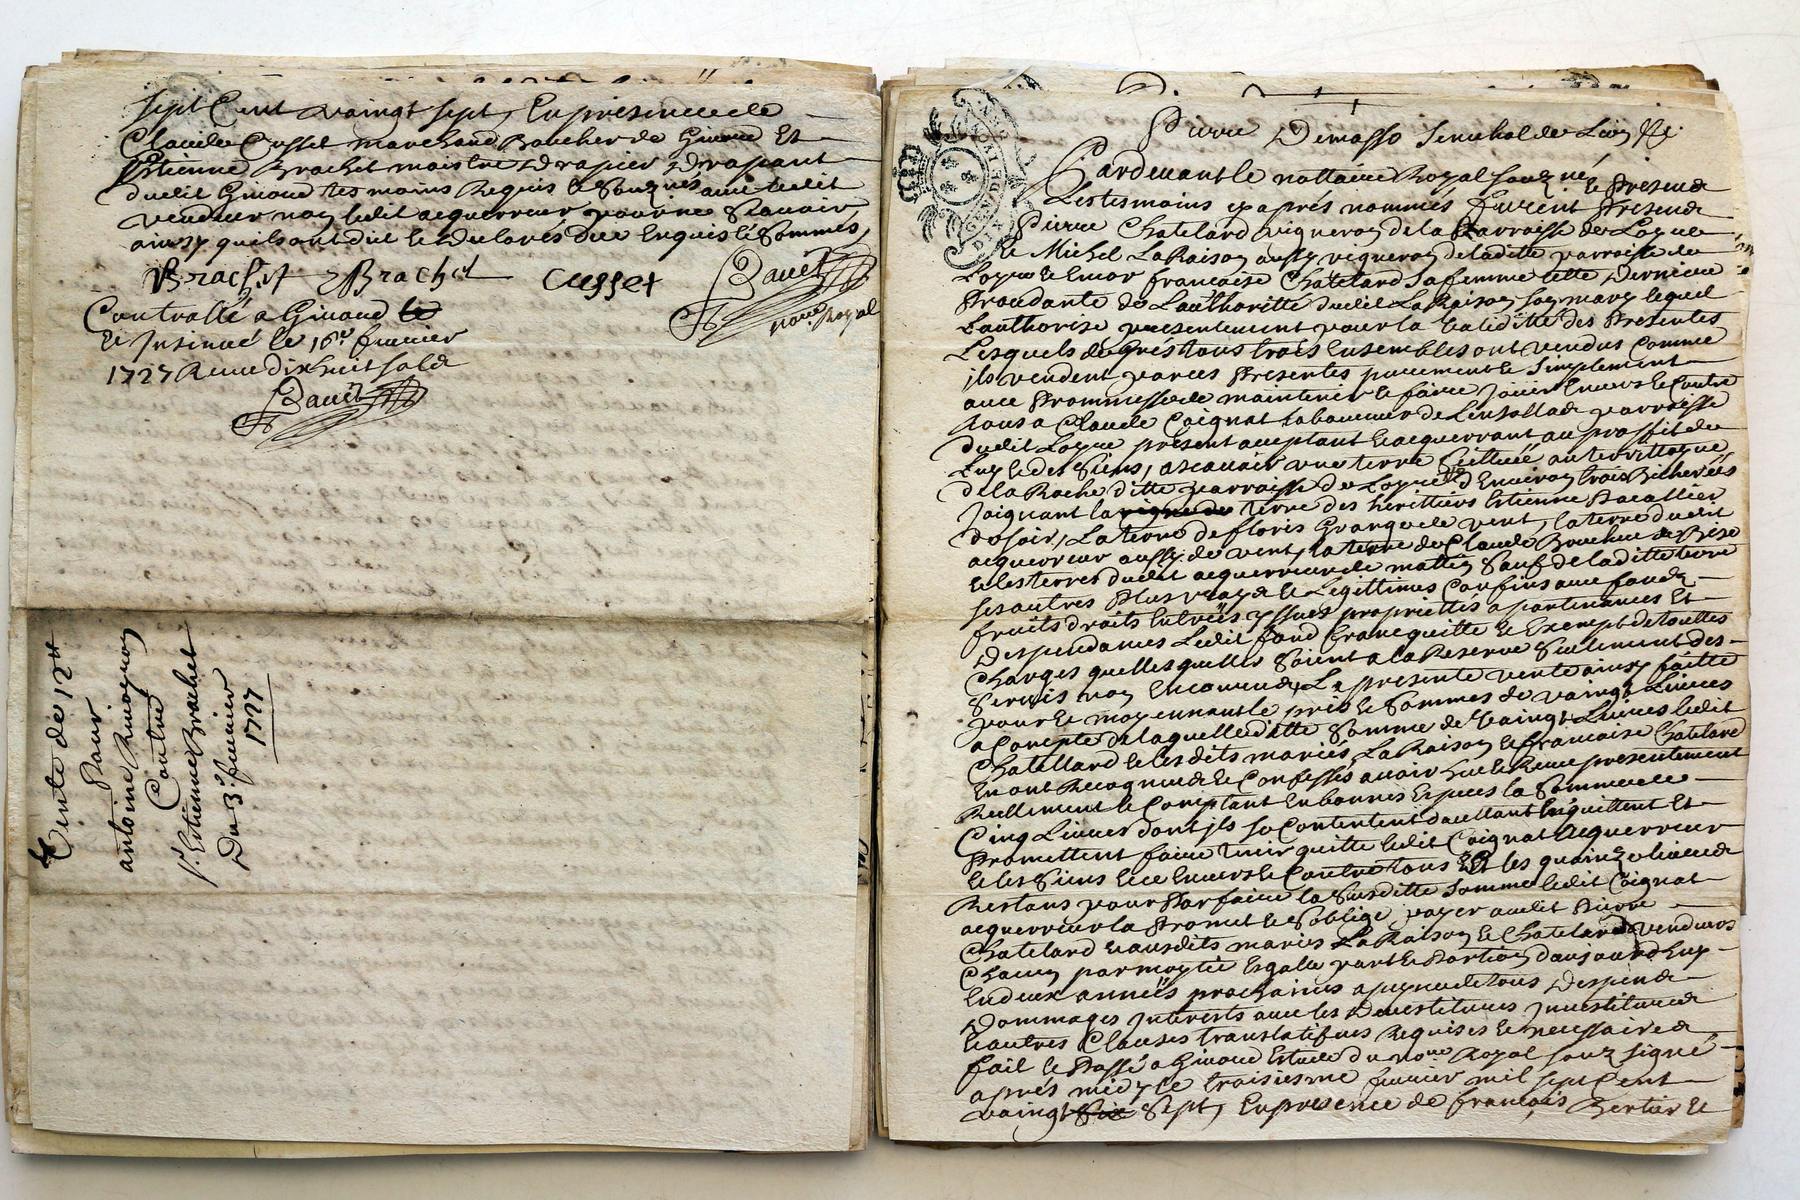 sept Cent vaingt sept, En presence de
Claude Cusset marchand Boucher de Giuord Et
Estienne Brachet maistre drapier drapant
dudit Giuord tesmoins Requis & Sousignés auec ledit
vendeur non ledit acquerreur pour ne Scauoir,
ainsy quils ont dit & declarés dûe Enquis & Sommés,
Brachet Brachet Cusset Bauet
nore. Royal
Controllé a Giuord le
Et Insinué le 16e feurier
1727 Receu dix huit sols
Bauet
Vente de 12tt
Pour
antoine
Contre
Sr. Estienne Brachet
Du 3e. feurier
1727
Pierre Demasso Senechal de Lion &c.
Pardeuant le nottaire Royal souz.né & Presence
Les tesmoins cy aprés nommés furent Presens
Pierre Chatelard vigneron de la Parroisse de Loyre
& Michel La Raison aussy vigneron de laditte parroisse de
Loyre & Encor francoise Chatelard sa femme cette derniere
Procedante de L'authoritté dudit La Raison son mary lequel
Lauthorise presentement pour la validitté des Presentes
Lesquels de Grés tous trois Ensembles ont vendus comme
ils vendent par ces Presentes purement & Simplement
auec Promesse de maintenir & faire Jouir Enuers & Contre
tous a Claude Coignat Laboureur de parroisse
dudit Loyre present acceptant & acquerrant au proffit de
Luy & des Siens, ascauoir vne terre Scittuée au territtoire
de la Roche ditte parroisse de Loyre d'Enuiron trois Bicherées
Joignant la vigne de terre des herittiers Estienne
de soir, La terre de floris Grange de vent, la terre dudit
acquerreur aussy de vent, la terre de Claude Boucher de Bise
& les terres dudit acquerreur de mattin Sauf de laditte terre
ses autres Plus vrays & Legittimes Confins auec fonds
fruits droits Entrées yssues propriettés apartenances Et
Despendances Ledit fond franc quitte & Exempt de touttes
Charges quelles quelles Soient a la Reserve Seulement des
Seruis non Encourus, La presente vente ainsy faitte
pour & moyennant le prix & Sommes de vaingt Liures
a Compte de laquelle ditte Somme de vaingt Liures ledit
Chatellard & lesdits mariés La Raison & francoise Chatelard
En ont Recognus & Confessés auoir heu & Receu presentement
Reellement & Comptant En bonnes Especes la Somme de
Cinq Liures dont ils se Contentent d'autant l'En quittent Et
Promettent faire tenir quitte ledit Coignat acquerreur
& les Siens & ce Enuers & Contre tous Et les quainze liures
Restans pour Parfaire la Susditte Somme ledit Coignat
acquerreur la Promet & Soblige, payer audit Pierre
Chatelard & ausdits mariés La Raison & Chatelard vendeurs
Chacun par moytié Esgalle part & Portion daujourd huy
En deux années prochaines a peyne de tous Despens
Dommages Interests auec les Deuestitures Inuestitures
& autres Clauses translatifues Requises & necessaires
fait & Passé a Giuord Estude du nore Royal souz signé
aprés midy le troisiesme feurier mil sept Cent
vaingt six Sept, En presence de francois Bertier &